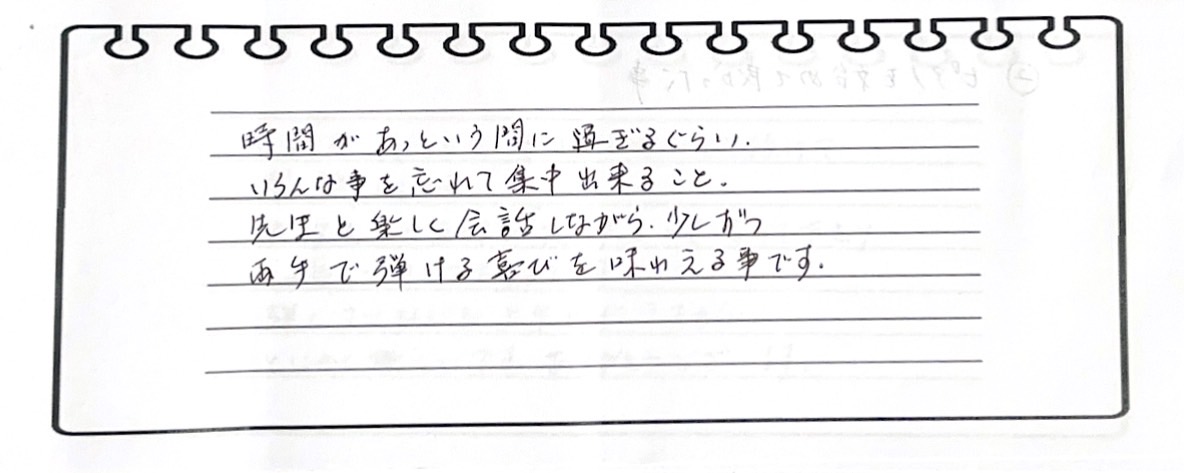 時間があっという間に過ぎるぐらい、
いろんな事を忘れて集中出来ること。
先生と楽しく会話しながら、少しずつ
両手で弾ける喜びを味わえる事です。